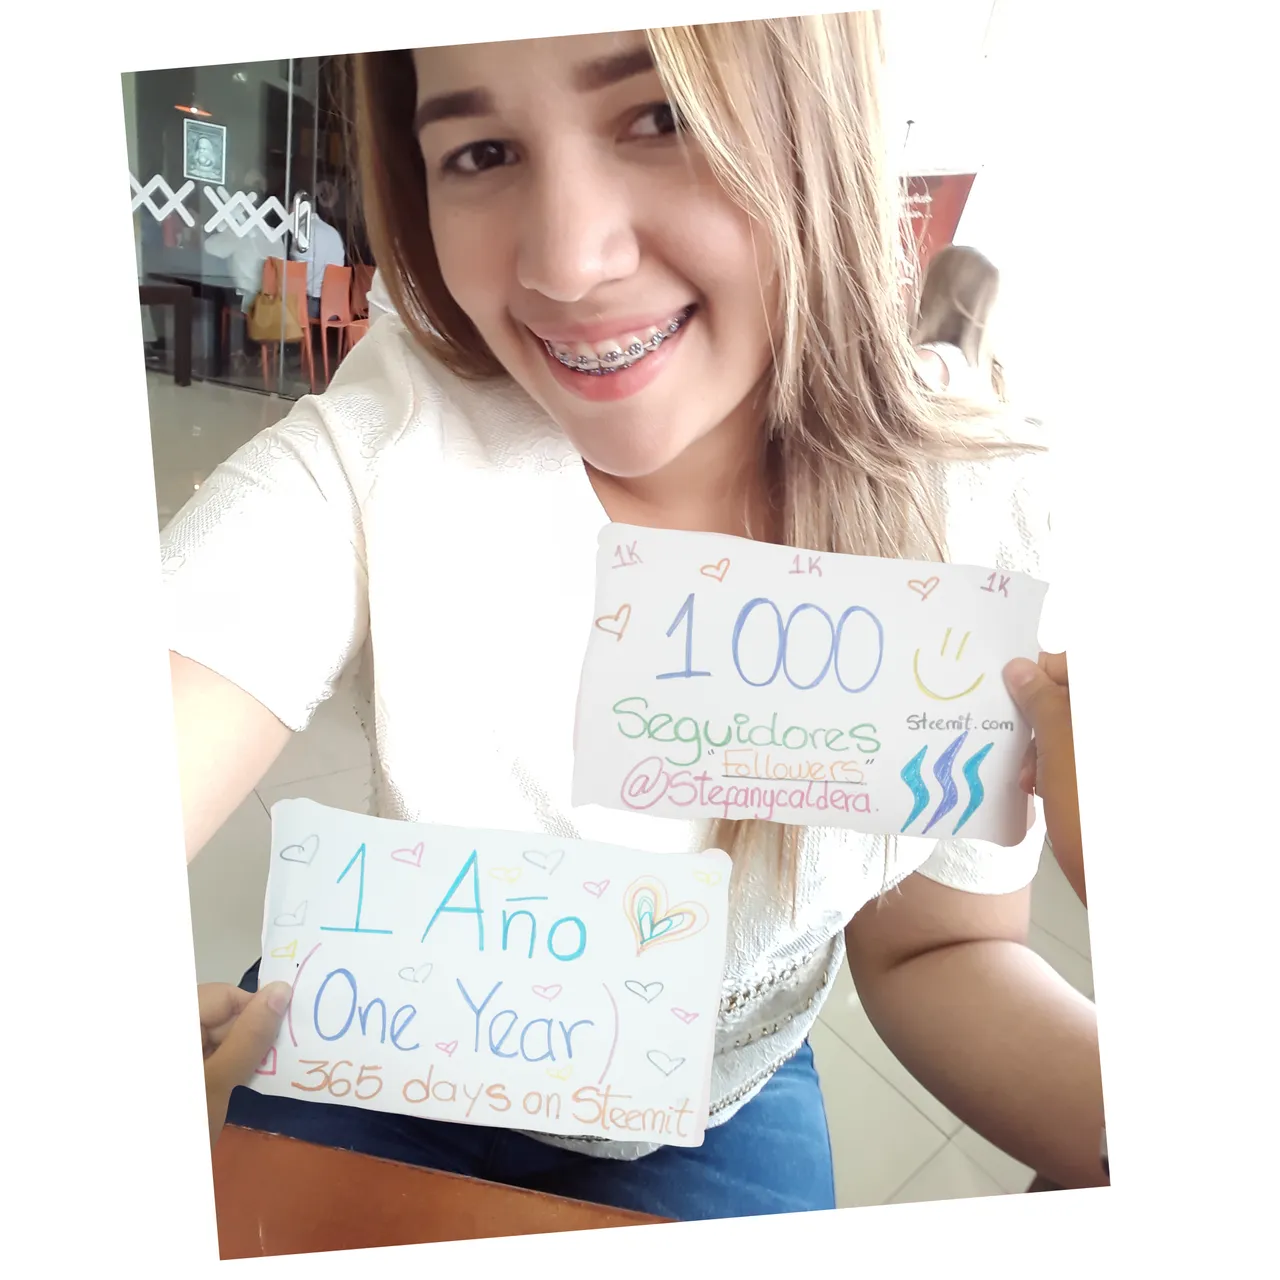 1K 1K 1K
1000
Seguidores
"Followers"
@Stefanycaldera.
Steemit.com
1 Año
(One Year)
365 days on Steemit